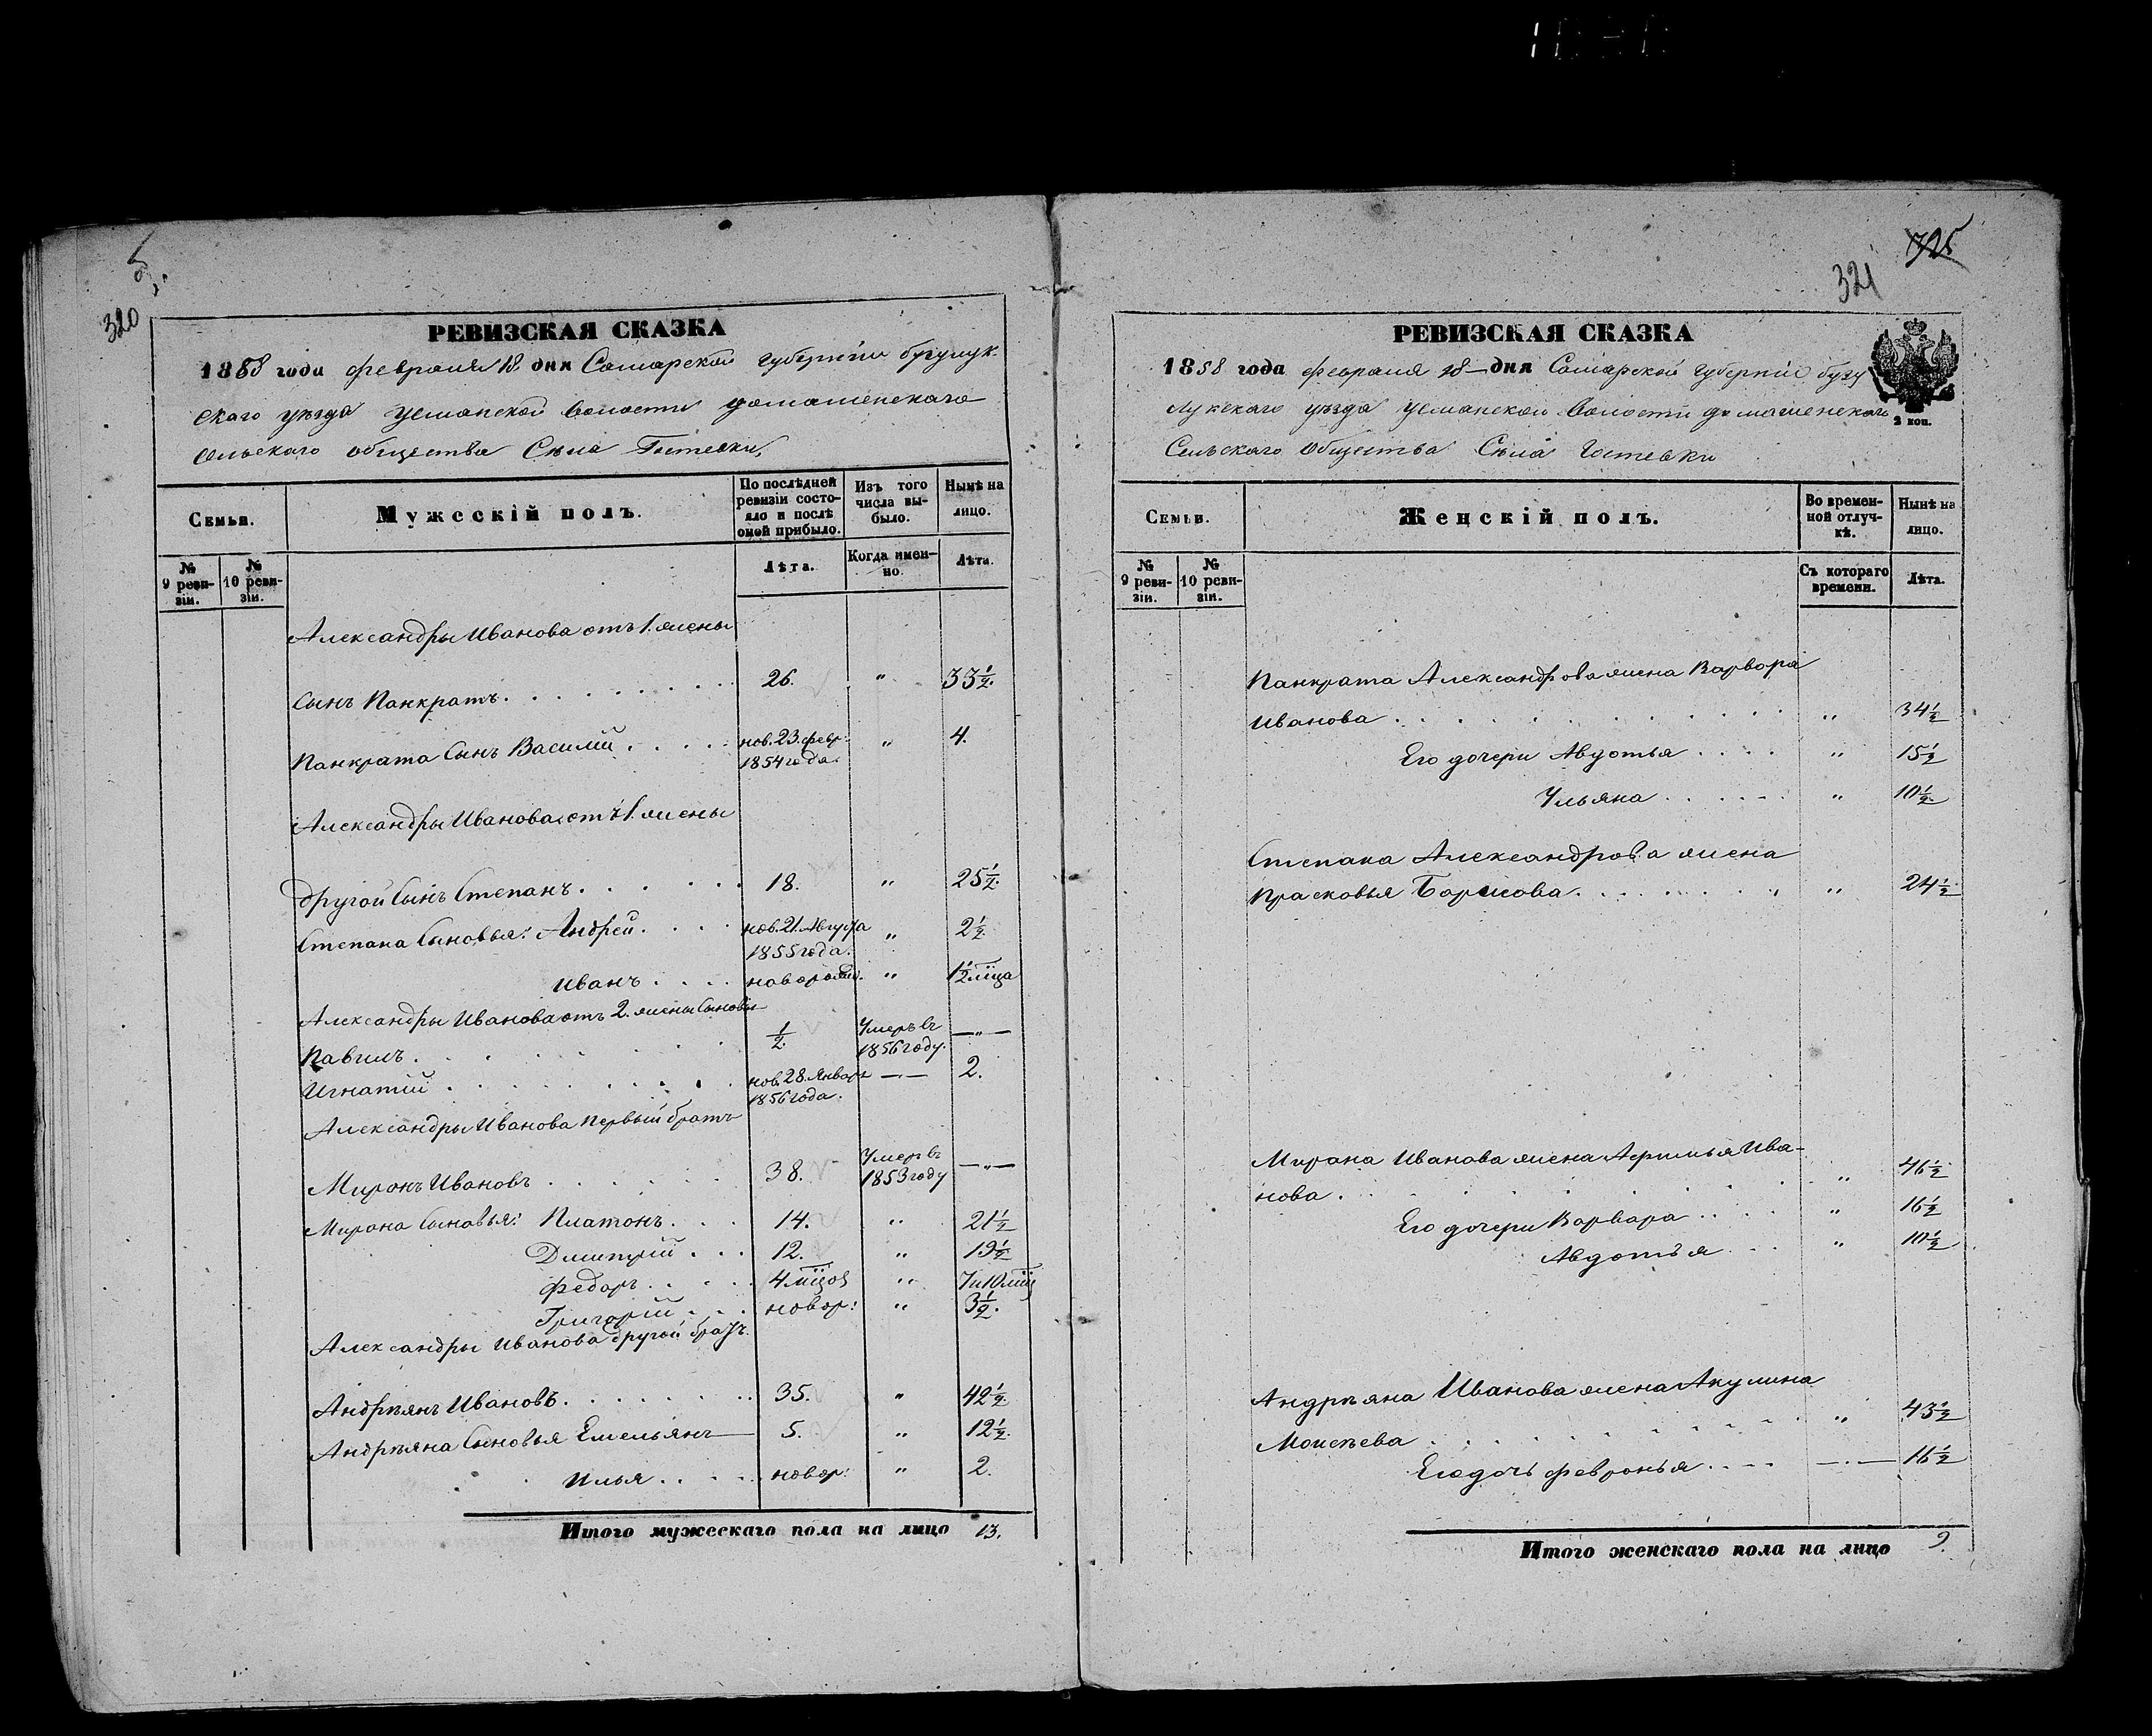 5.
320
РЕВИЗСКАЯ СКАЗКА
1858 года февраля 18 дня Самарской губерніи бузулук-
скаго уѣзда усманской волости домашенскаго
сельскаго общества Сѣла Гостевки,
Семьи.
Мужескій полъ.
По послѣдней ревизіи состояло и послѣ оной прибыло.
Изъ того числа выбыло.
Нынѣ на лицо.
№ 9 ревизіи.
№ 10 ревизіи.
Лѣта.
Когда именно.
Лѣта.
Александры Иванова отъ 1. жены
Сынъ Панкратъ. 26. " 33 1/2.
Панкрата Сынъ Василій. нов. 23. февр: 1854 года. " 4.
Александры Иванова отъ 1. жены
другой Сынъ Степанъ. 18. " 25 1/2.
Степана Сыновья: Андрей. нов. 21. Августа 1855 года. " 2 1/2.
Иванъ. новорожд. " 1/2 мѣца
Александры Иванова отъ 2. жены Сыновья
Павилъ. 1/2. Умеръ въ 1856 году. —"—
Игнатій. нов. 28. Январ 1856 года. —"— 2.
Александры Иванова первый братъ
Миронъ Ивановъ. 38. Умеръ въ 1853 году —"—
Мирона Сыновья: Платонъ. 14. " 21 1/2
Дмитрій. 12. " 19 1/2
Федоръ. 4 мѣцов " 7 и 10 мѣц
Григорій. новор: " 3 1/2.
Александры Иванова другой братъ.
Андрѣянъ Ивановъ. 35. " 42 1/2.
Андрѣяна Сыновья Емельянъ 5. " 12 1/2.
Илья. новор: " 2.
Итого мужескаго пола на лицо 13.
725
321
РЕВИЗСКАЯ СКАЗКА
1858 года февраля 18 дня Самарской губерніи бузу
лукскаго уѣзда усманской волости домашенскаго
2 коп.
Сельскаго общества Сѣла Гостевки
Семьи.
Женскій полъ.
Во временной отлучкѣ.
Нынѣ на лицо.
№ 9 ревизіи.
№ 10 ревизіи.
Съ котораго времени.
Лѣта.
Панкрата Александрова жена Варвора
Иванова. " 34 1/2
Его дочери Авдотья " 15 1/2
Ульяна " 10 1/2.
Степана Александрова жена
Прасковья Борисова. " 24 1/2
Мирона Иванова жена Афимья Ива-
нова. " 46 1/2
Его дочери Варвара " 16 1/2
Авдотья " 10 1/2
Андрѣяна Иванова жена Акулина
Моисѣева " 43 1/2
Его дочь февронья —"— 16 1/2
Итого женскаго пола на лицо 9.